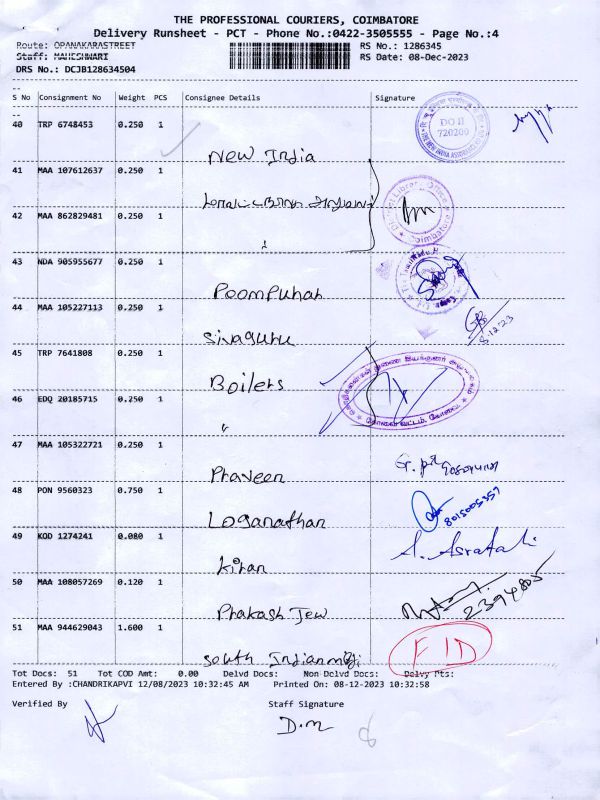 THE PROFESSIONAL COURIERS, COIMBATORE
Delivery Runsheet - PCT - Phone No.:0422-3505555 - Page No.:4
Route: OPANAKARASTREET RS No.: 1286345
Staff: MAHESHWARI RS Date: 08-Dec-2023
DRS No.: DCJB128634504
S No Consignment No Weight PCS Consignee Details Signature
40 TRP 6748453 0.250 1
DO II
720200
New India
41 MAA 107612637 0.250 1
District Library Officer
Coimbatore
42 MAA 862829481 0.250 1
"
43 NDA 905955677 0.250 1
Poompuhar
44 MAA 105227113 0.250 1
Sivaguru
8.12.23
45 TRP 7641808 0.250 1
Boilers
46 EDQ 20185715 0.250 1
"
47 MAA 105322721 0.250 1
Praveen
48 PON 9560323 0.750 1
Loganathan
8015005357
49 KOD 1274241 0.080 1
Kiran
50 MAA 108057269 0.120 1
Prakash Jew
2394805
51 MAA 944629043 1.600 1
South Indian
FID
Tot Docs: 51 Tot COD Amt: 0.00 Delvd Docs: Non Delvd Docs: Delvy Pts:
Entered By :CHANDRIKAPVI 12/08/2023 10:32:45 AM Printed On: 08-12-2023 10:32:58
Verified By Staff Signature
D.M